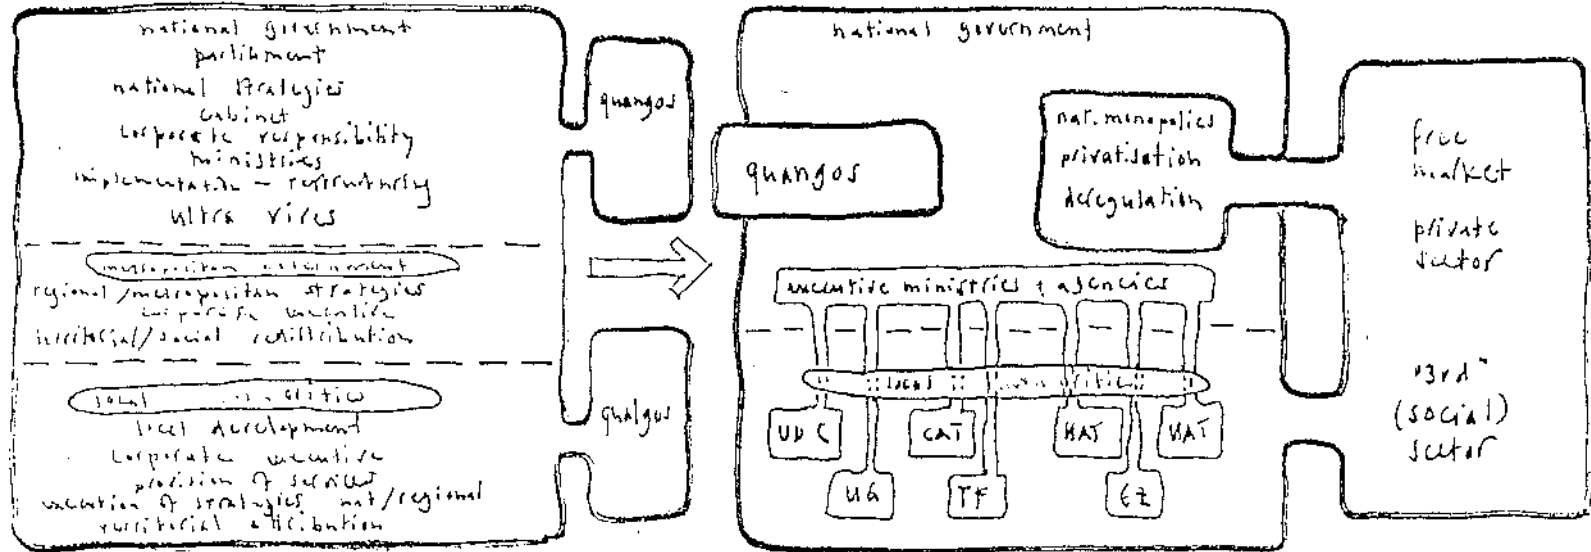 national government
parliament
national strategies
cabinet
corporate responsibility
ministries
implementation -
ultra vires
metropolitan government
regional/metropolitan strategies
corporate executive
territorial/social redistribution
local
local development
corporate executive
provision of services
execution of strategies nat/regional
territorial distribution
quangos
qualgos
national government
quangos
nat. monopolies
privatisation
deregulation
executive ministries + agencies
local authorities
UDC
CAT
HAT
HAT
UG
TF
EZ
free
market
private
sector
"3rd"
(social)
sector